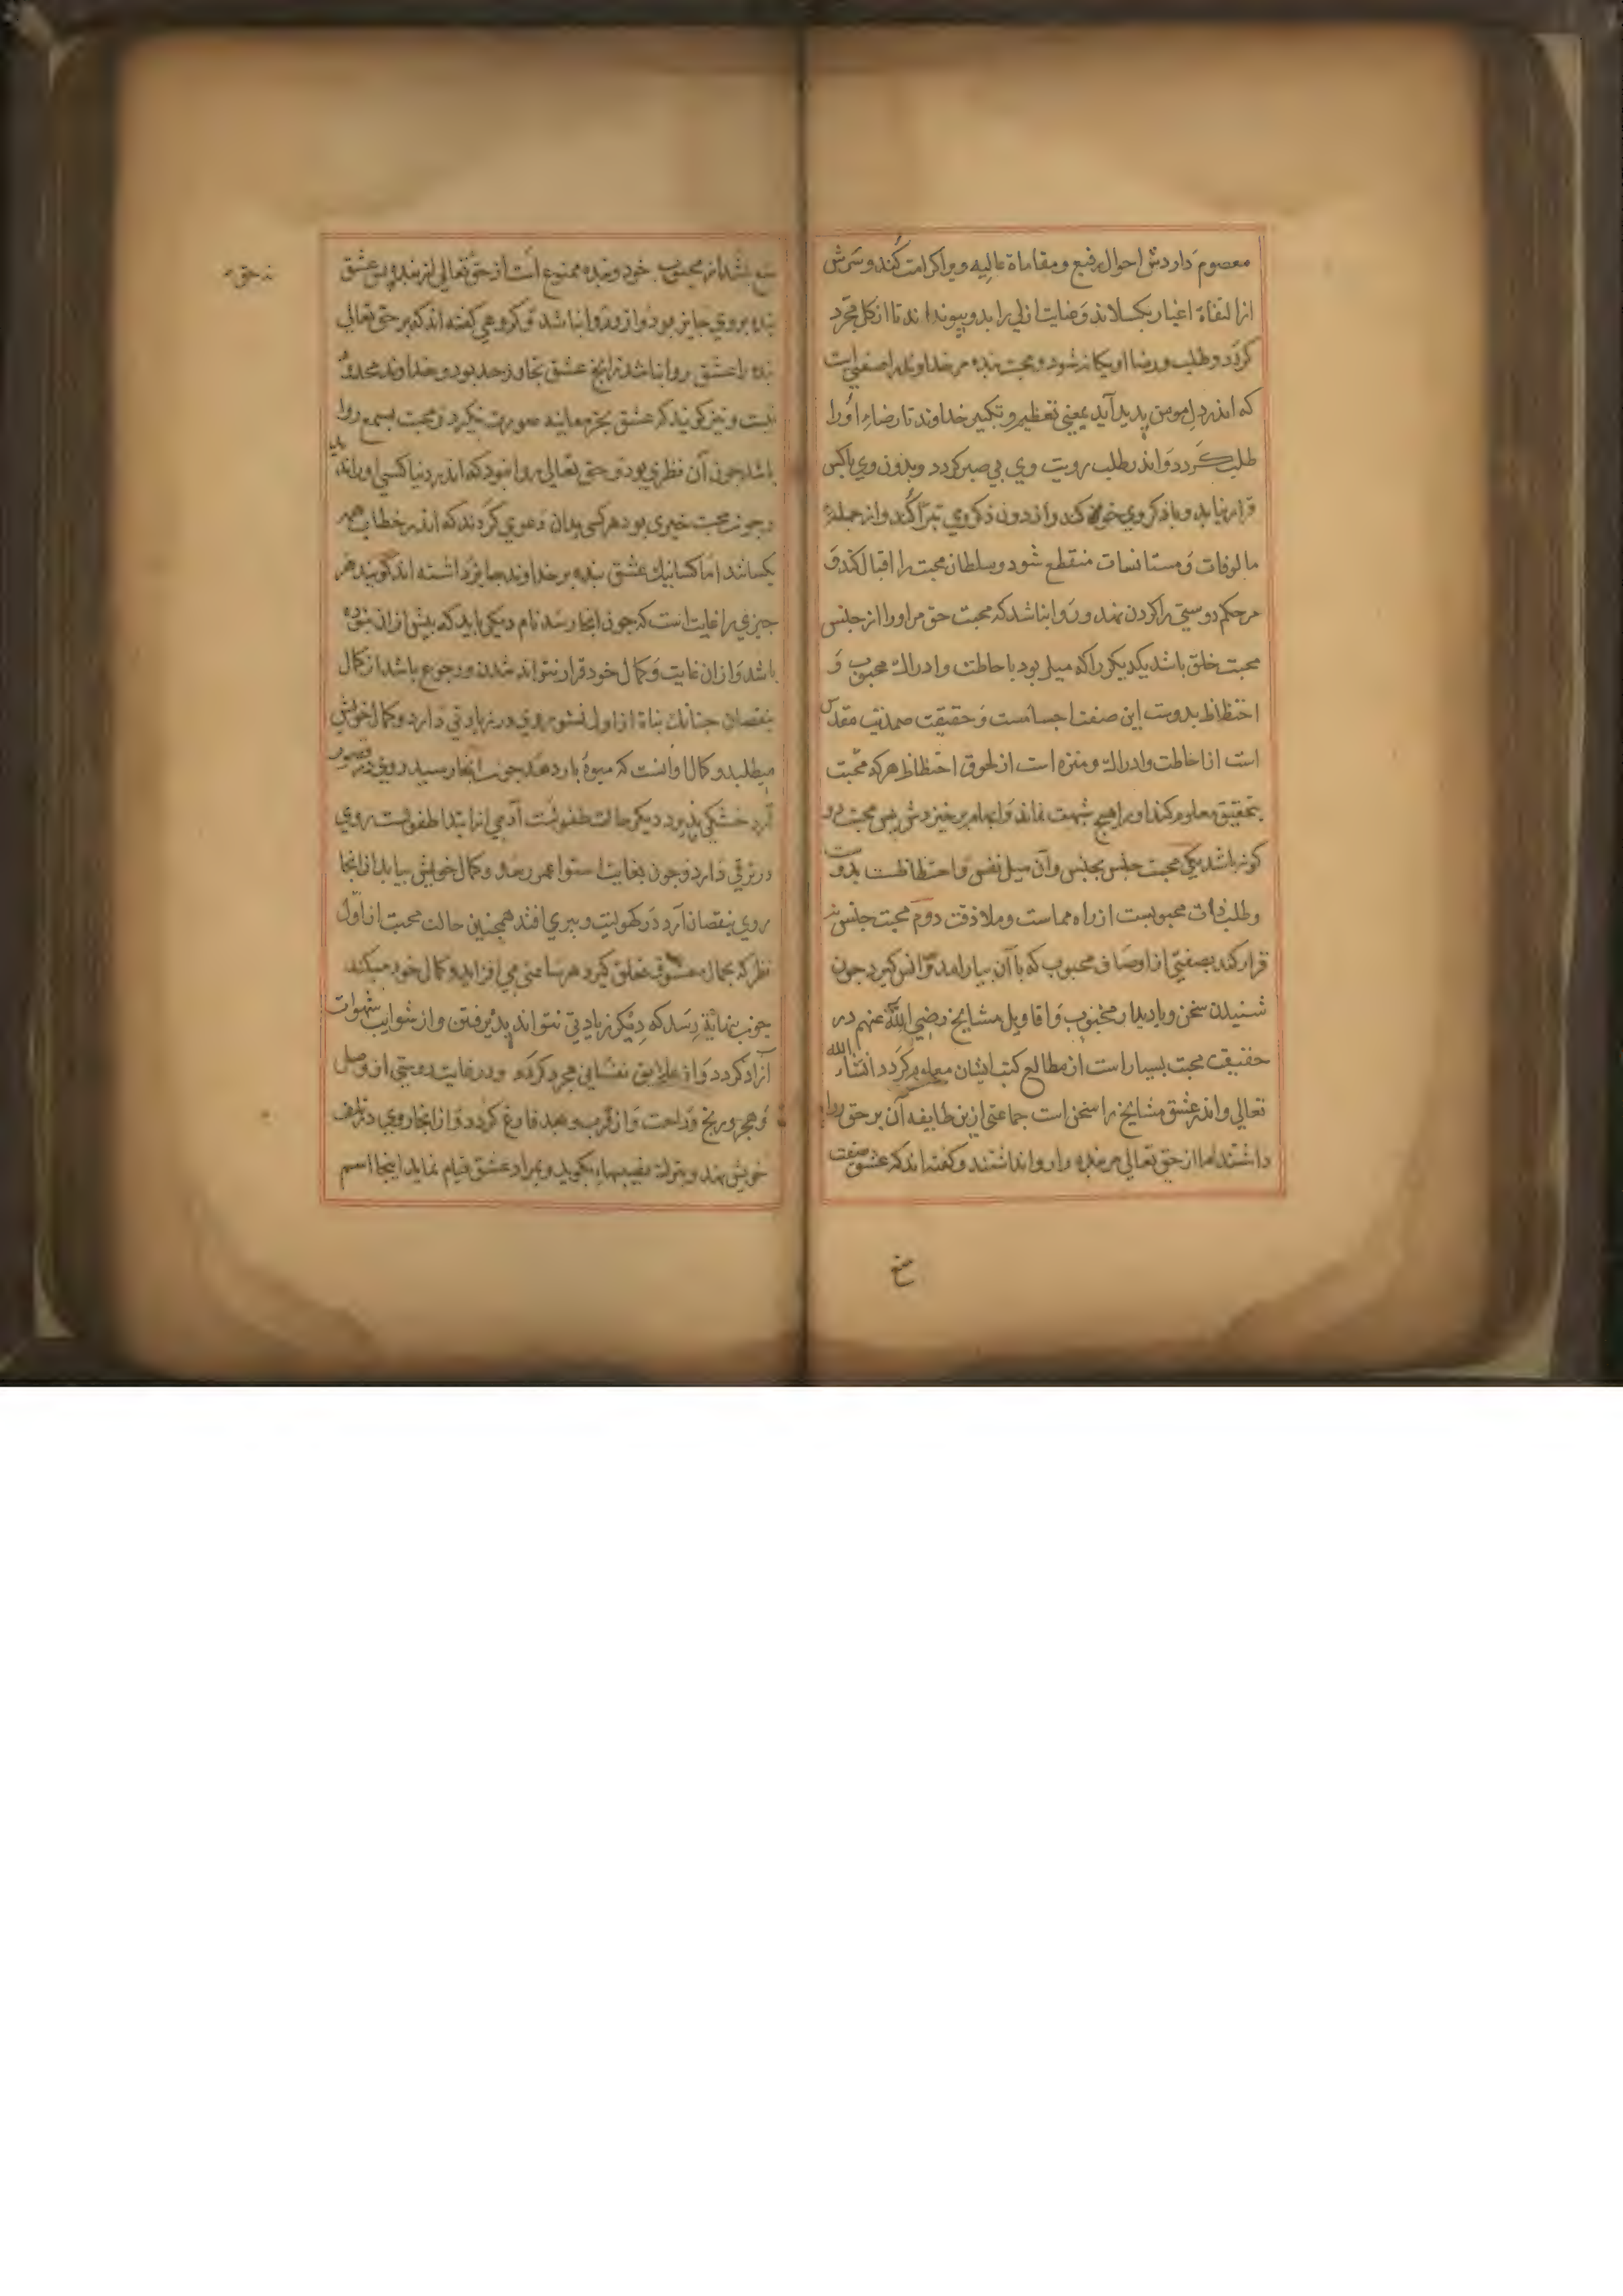 معصوم داردش احوال رفیع و مقاماة عالیه و ویرا کرامت کند و سرش
از التفاة اغیار بکسلاند و عنایت ازلی را بدو پیونداند تا از کل مجرد
کردد و طلب و رضا او یکانه شود و محبت بنده مر خداوند را صفتی است
که اندر دل مومن پدید آید بمعنی تعظیم و تکبیر خداوند تا رضاء او را
طلب کردد و اندر طلب رویت وی بی صبر کردد و بدون وی باکس
قرار نیابد و با ذکر وی خو کند و از دون ذکر وی تبرا کند و از جمله
مالوفات و مستانسات منقطع شود و سلطان محبت را اقبال کند و
مر حکم دوستی را کردن نهد و روا نباشد که محبت حق مر او را از جنس
محبت خلق باشد یکدیکر را که میل بود باحاطت و ادراک محبوب و
احتظاظ بدوست این صفت اجسامست و حقیقت صمدیت مقدس
است از احاطت و ادراک و منزه است از لحوق احتظاظ هر که محبت
بتحقیق معلوم کند او را هیچ شبهت نماند و ابهام برخیزدش پس محبت دو
کونه باشد یکی محبت جنس بجنس و آن میل نفس و احتظاظست بدوست
و طلب ذات محبوبست از راه مماست و ملاذقت دوم محبت جنس نه
قرار کند بصفتی از اوصاف محبوب که با آن بیارامد و انس کیرد چون
شنیدن سخن و یا دیدار محبوب و اقاویل مشایخ رضی الله عنهم در
حقیقت محبت بسیار است از مطالع کتب ایشان معلوم کردد انشاء الله
تعالی و اندر عشق مشایخ را سخن است جماعتی ازین طایفه آن بر حق روا
داشتند اما از حق تعالی مر بنده را روا نداشتند و کفته اند که عشق صفت
منع
منع باشد از محبوب خود و بنده ممنوع است از حق تعالی نه حق از بنده پس عشق
بنده بروی جایز بود و از وی روا نباشد و کروهی کفته اند که بر حق تعالی
بنده را عشق روا نباشد زانج عشق تجاوز حد بود و خداوند محدود
نیست و نیز کویند که عشق بجز معاینه صورت نکیرد و محبت بسمع روا
باشد چون آن نظری بود و حق تعالی روا نبود که اندر دنیا کسی او را بدید
و چون محبت خبری بود هر کسی بدان دعوی کردند که اندر خطاب همه
یکسانند اما کسانیک عشق بنده بر خداوند جایز داشته اند کویند هر
چیزی را غایت است که چون انجا رسد نام دیکر یابد که بیش از ان نبوده
باشد و از ان غایت و کمال خود قرار نتواند شدن و رجوع باشد از کمال
بنقصان چنانک نباة از اول نشو روی در زیادتی دارد و کمال خویش
میطلبد و کمال او انست که میوه بار دهد چون انجا رسید روی در قصور
آرد خشکی پذیرد دیکر حالت طفولیت آدمی از ابتدا طفولیت روی
در ترقی دارد و چون بغایت استوا عمر رسد و کمال خویش بیابد از انجا
روی بنقصان آرد در کهولیت و پیری افتد همچنین حالت محبت از اول
نظر که بجمال معشوق تعلق کیرد هر ساعتی می افزاید و کمال خود میکند
چون بنهایة رسد که دیکر زیادتی نتواند پذیرفتن و از شوایب شهوات
آزاد کردد و از علایق نفسانی مجرد کردد و در غایت از وصل
و هجر و رنج و راحت و از قرب و بعد فارغ کردد و از انجا روی در تلف
خویش نهد و بترک نصیبها بکوید و بمراد عشق قیام نماید اینجا اسم